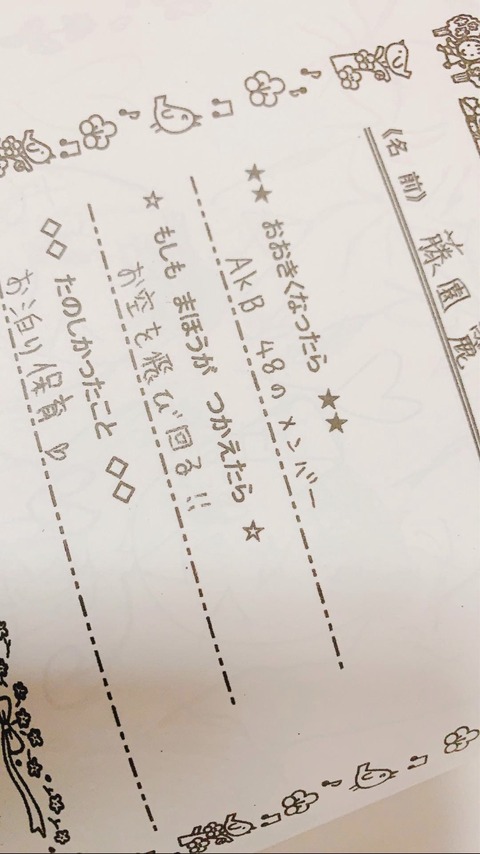 《名前》 藤園麗
★★ おおきくなったら ★★
AKB 48の メンバー
☆ もしも まほうが つかえたら ☆
お空を飛び回る!!
◇◇ たのしかったこと ◇◇
お泊り保育♡